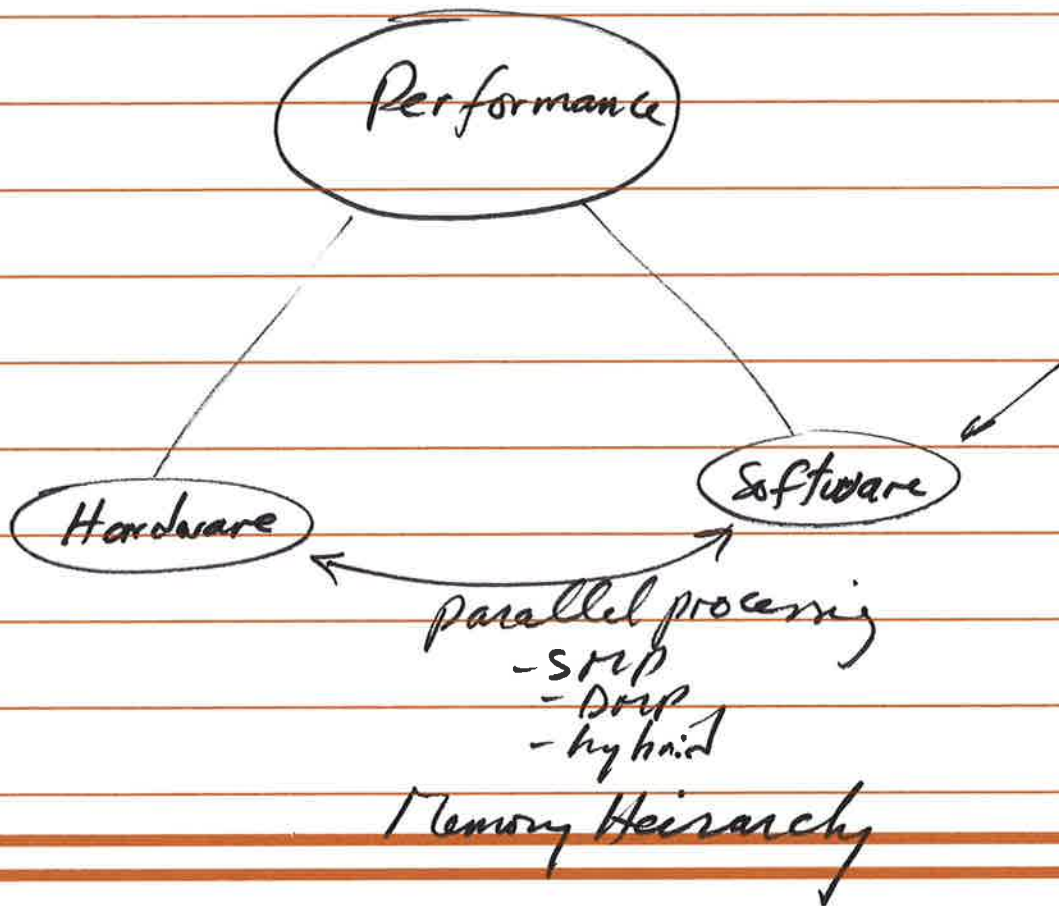 Performance
Hardware
Software
parallel processing
- SMP
- DMP
- hybrid
Memory Heirarchy